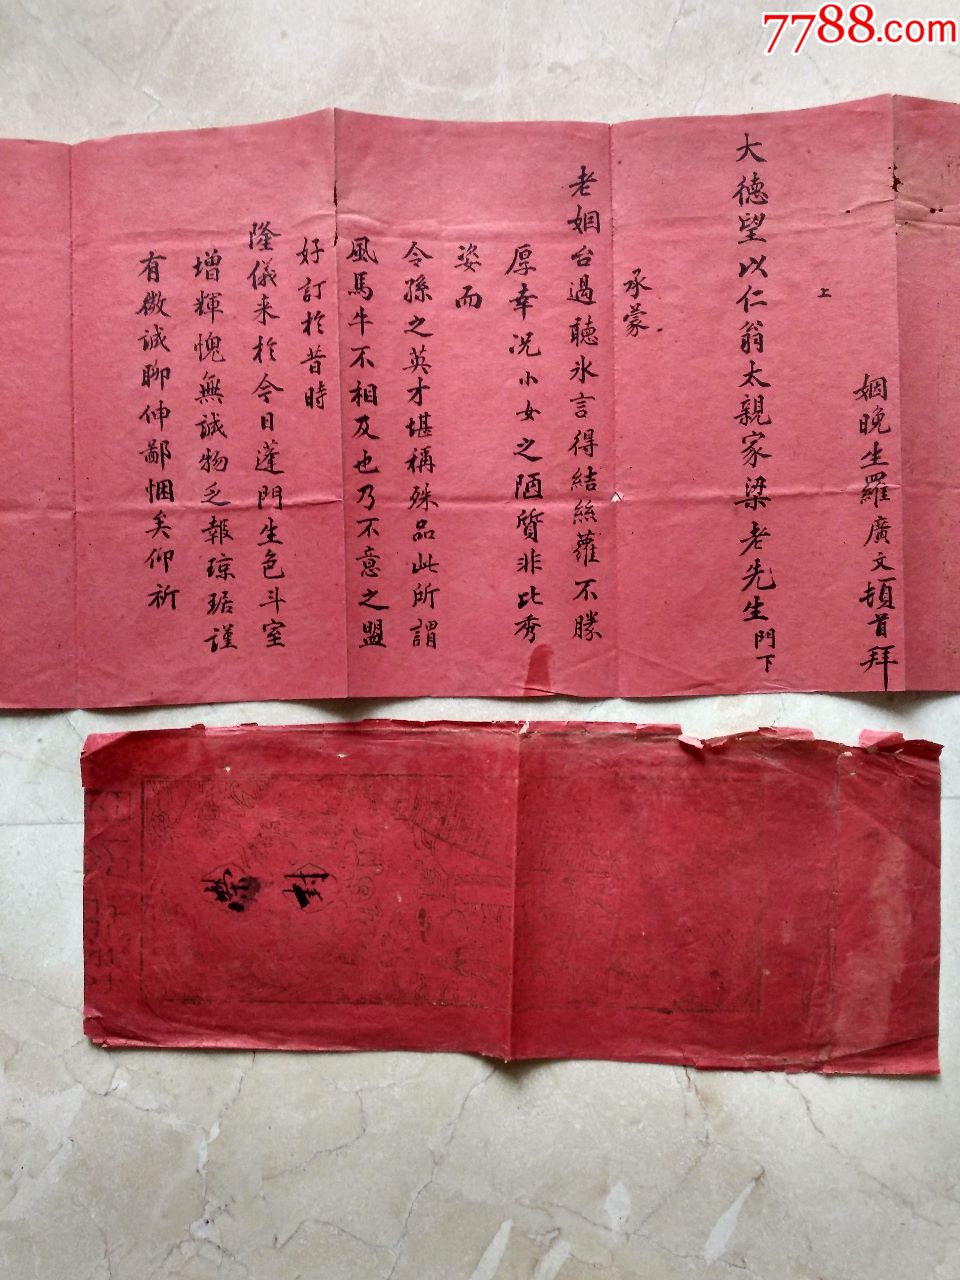 7788.com
姻晚生羅廣文頓首拜
上
大德望以仁翁太親家梁老先生門下
承蒙
老姻台過聽氷言得結絲蘿不勝
厚幸况小女之陋質非比秀
姿而
令孫之英才堪稱殊品此所謂
風馬牛不相及也乃不意之盟
好訂於昔時
隆儀来於今日蓬門生色斗室
增輝愧無誠物乏報琼琚謹
有微誠聊伸鄙悃矣仰祈